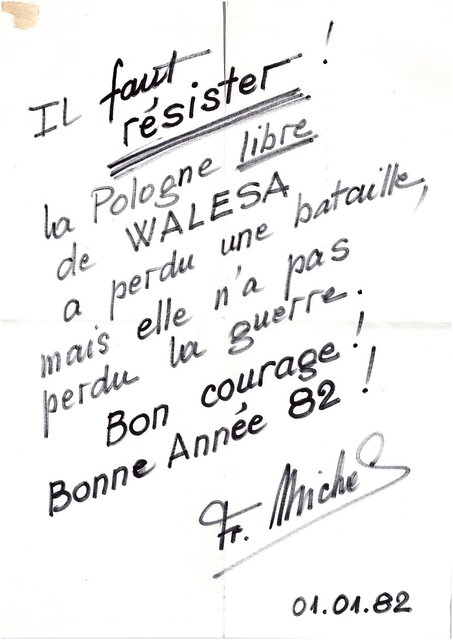 IL faut !
résister
la Pologne libre
de WALESA
a perdu une bataille,
mais elle n'a pas
perdu la guerre.
Bon courage !
Bonne Année 82 !
Fr. Michel
01.01.82